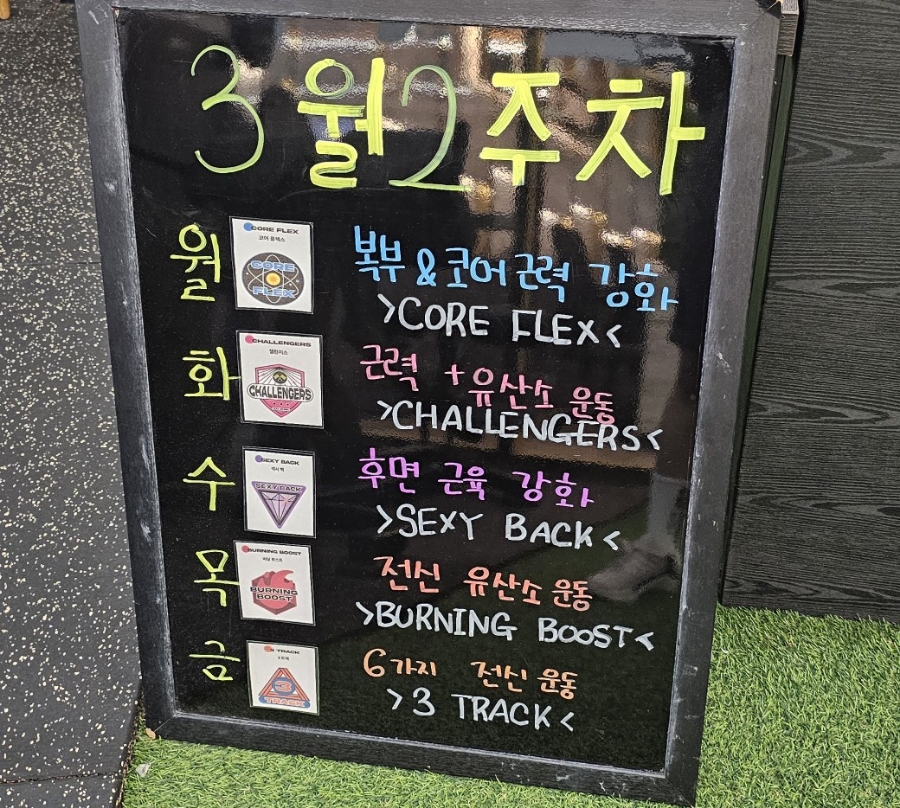 3월2주차
월
CORE FLEX
코어 플렉스
CORE
FLEX
복부 & 코어 근력 강화
>CORE FLEX<
화
CHALLENGERS
챌린저스
CHALLENGERS
근력 + 유산소 운동
>CHALLENGERS<
수
SEXY BACK
섹시 백
SEXY BACK
후면 근육 강화
>SEXY BACK<
목
BURNING BOOST
버닝 부스트
BURNING
BOOST
전신 유산소 운동
>BURNING BOOST<
금
3 TRACK
3
TRACK
6가지 전신 운동
>3 TRACK<